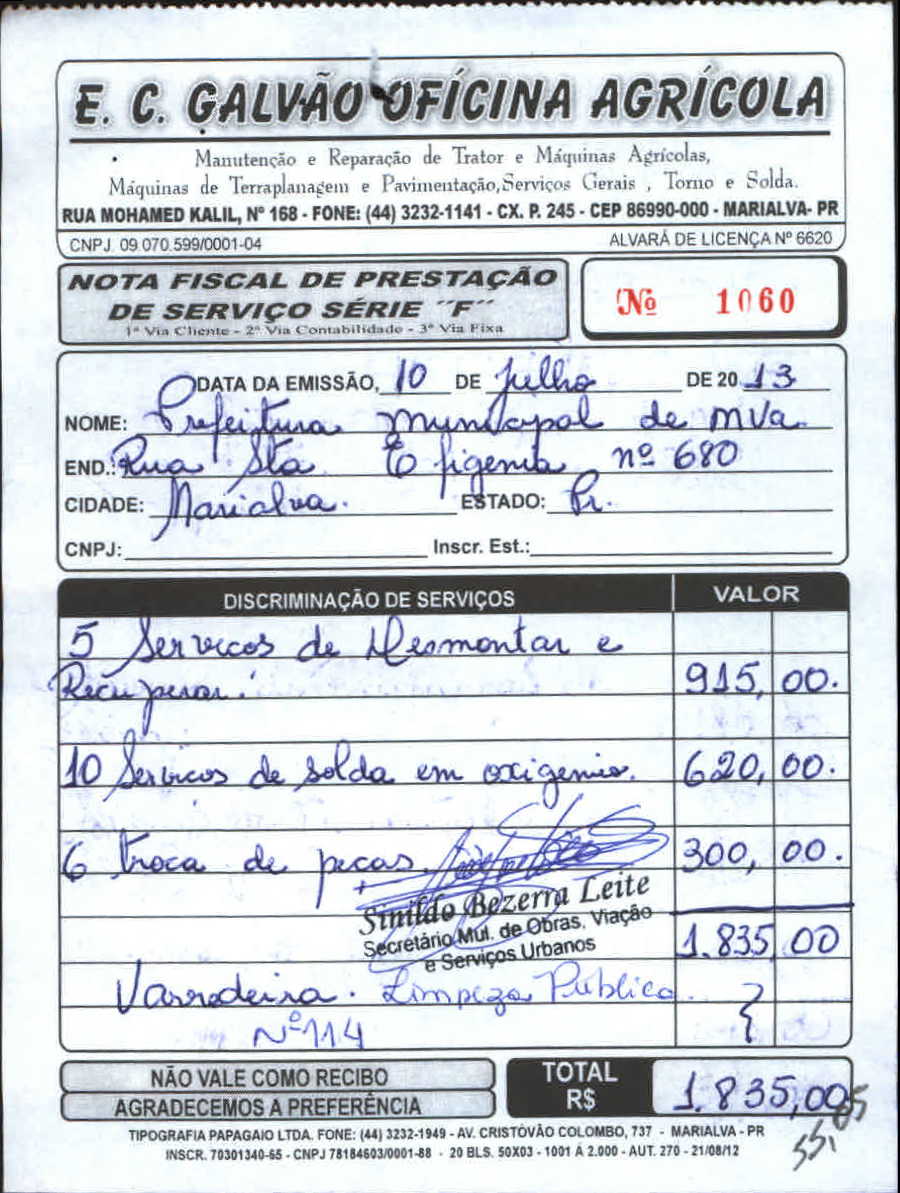 E. C. GALVÃO OFÍCINA AGRÍCOLA
Manutenção e Reparação de Trator e Máquinas Agrícolas,
Máquinas de Terraplanagem e Pavimentação, Serviços Gerais , Torno e Solda.
RUA MOHAMED KALIL, Nº 168 - FONE: (44) 3232-1141 - CX. P. 245 - CEP 86990-000 - MARIALVA- PR
CNPJ. 09.070.599/0001-04 ALVARÁ DE LICENÇA Nº 6620
NOTA FISCAL DE PRESTAÇÃO
DE SERVIÇO SÉRIE "F"
1ª Via Cliente - 2ª Via Contabilidade - 3ª Via Fixa
Nº 1060
DATA DA EMISSÃO, 10 DE Julho DE 20 13
NOME: Prefeitura Municipal de MVa
END.: Rua Sta Efigenia nº 680
CIDADE: Marialva. ESTADO: Pr.
CNPJ: Inscr. Est.:
DISCRIMINAÇÃO DE SERVIÇOS VALOR
5 Servicos de Desmontar e
Recuperar. 915,00.
10 Servicos de solda em oxigenio. 620,00.
6 troca de pecas. 300,00.
Sinildo Bezerra Leite
Secretário Mul. de Obras, Viação
e Serviços Urbanos
1.835,00
Varredeira. Limpeza Publica.
Nº 114
NÃO VALE COMO RECIBO
AGRADECEMOS A PREFERÊNCIA
TOTAL R$ 1.835,00
TIPOGRAFIA PAPAGAIO LTDA. FONE: (44) 3232-1949 - AV. CRISTÓVÃO COLOMBO, 737 - MARIALVA - PR
INSCR. 70301340-65 - CNPJ 78184603/0001-88 - 20 BLS. 50X03 - 1001 À 2.000 - AUT. 270 - 21/08/12